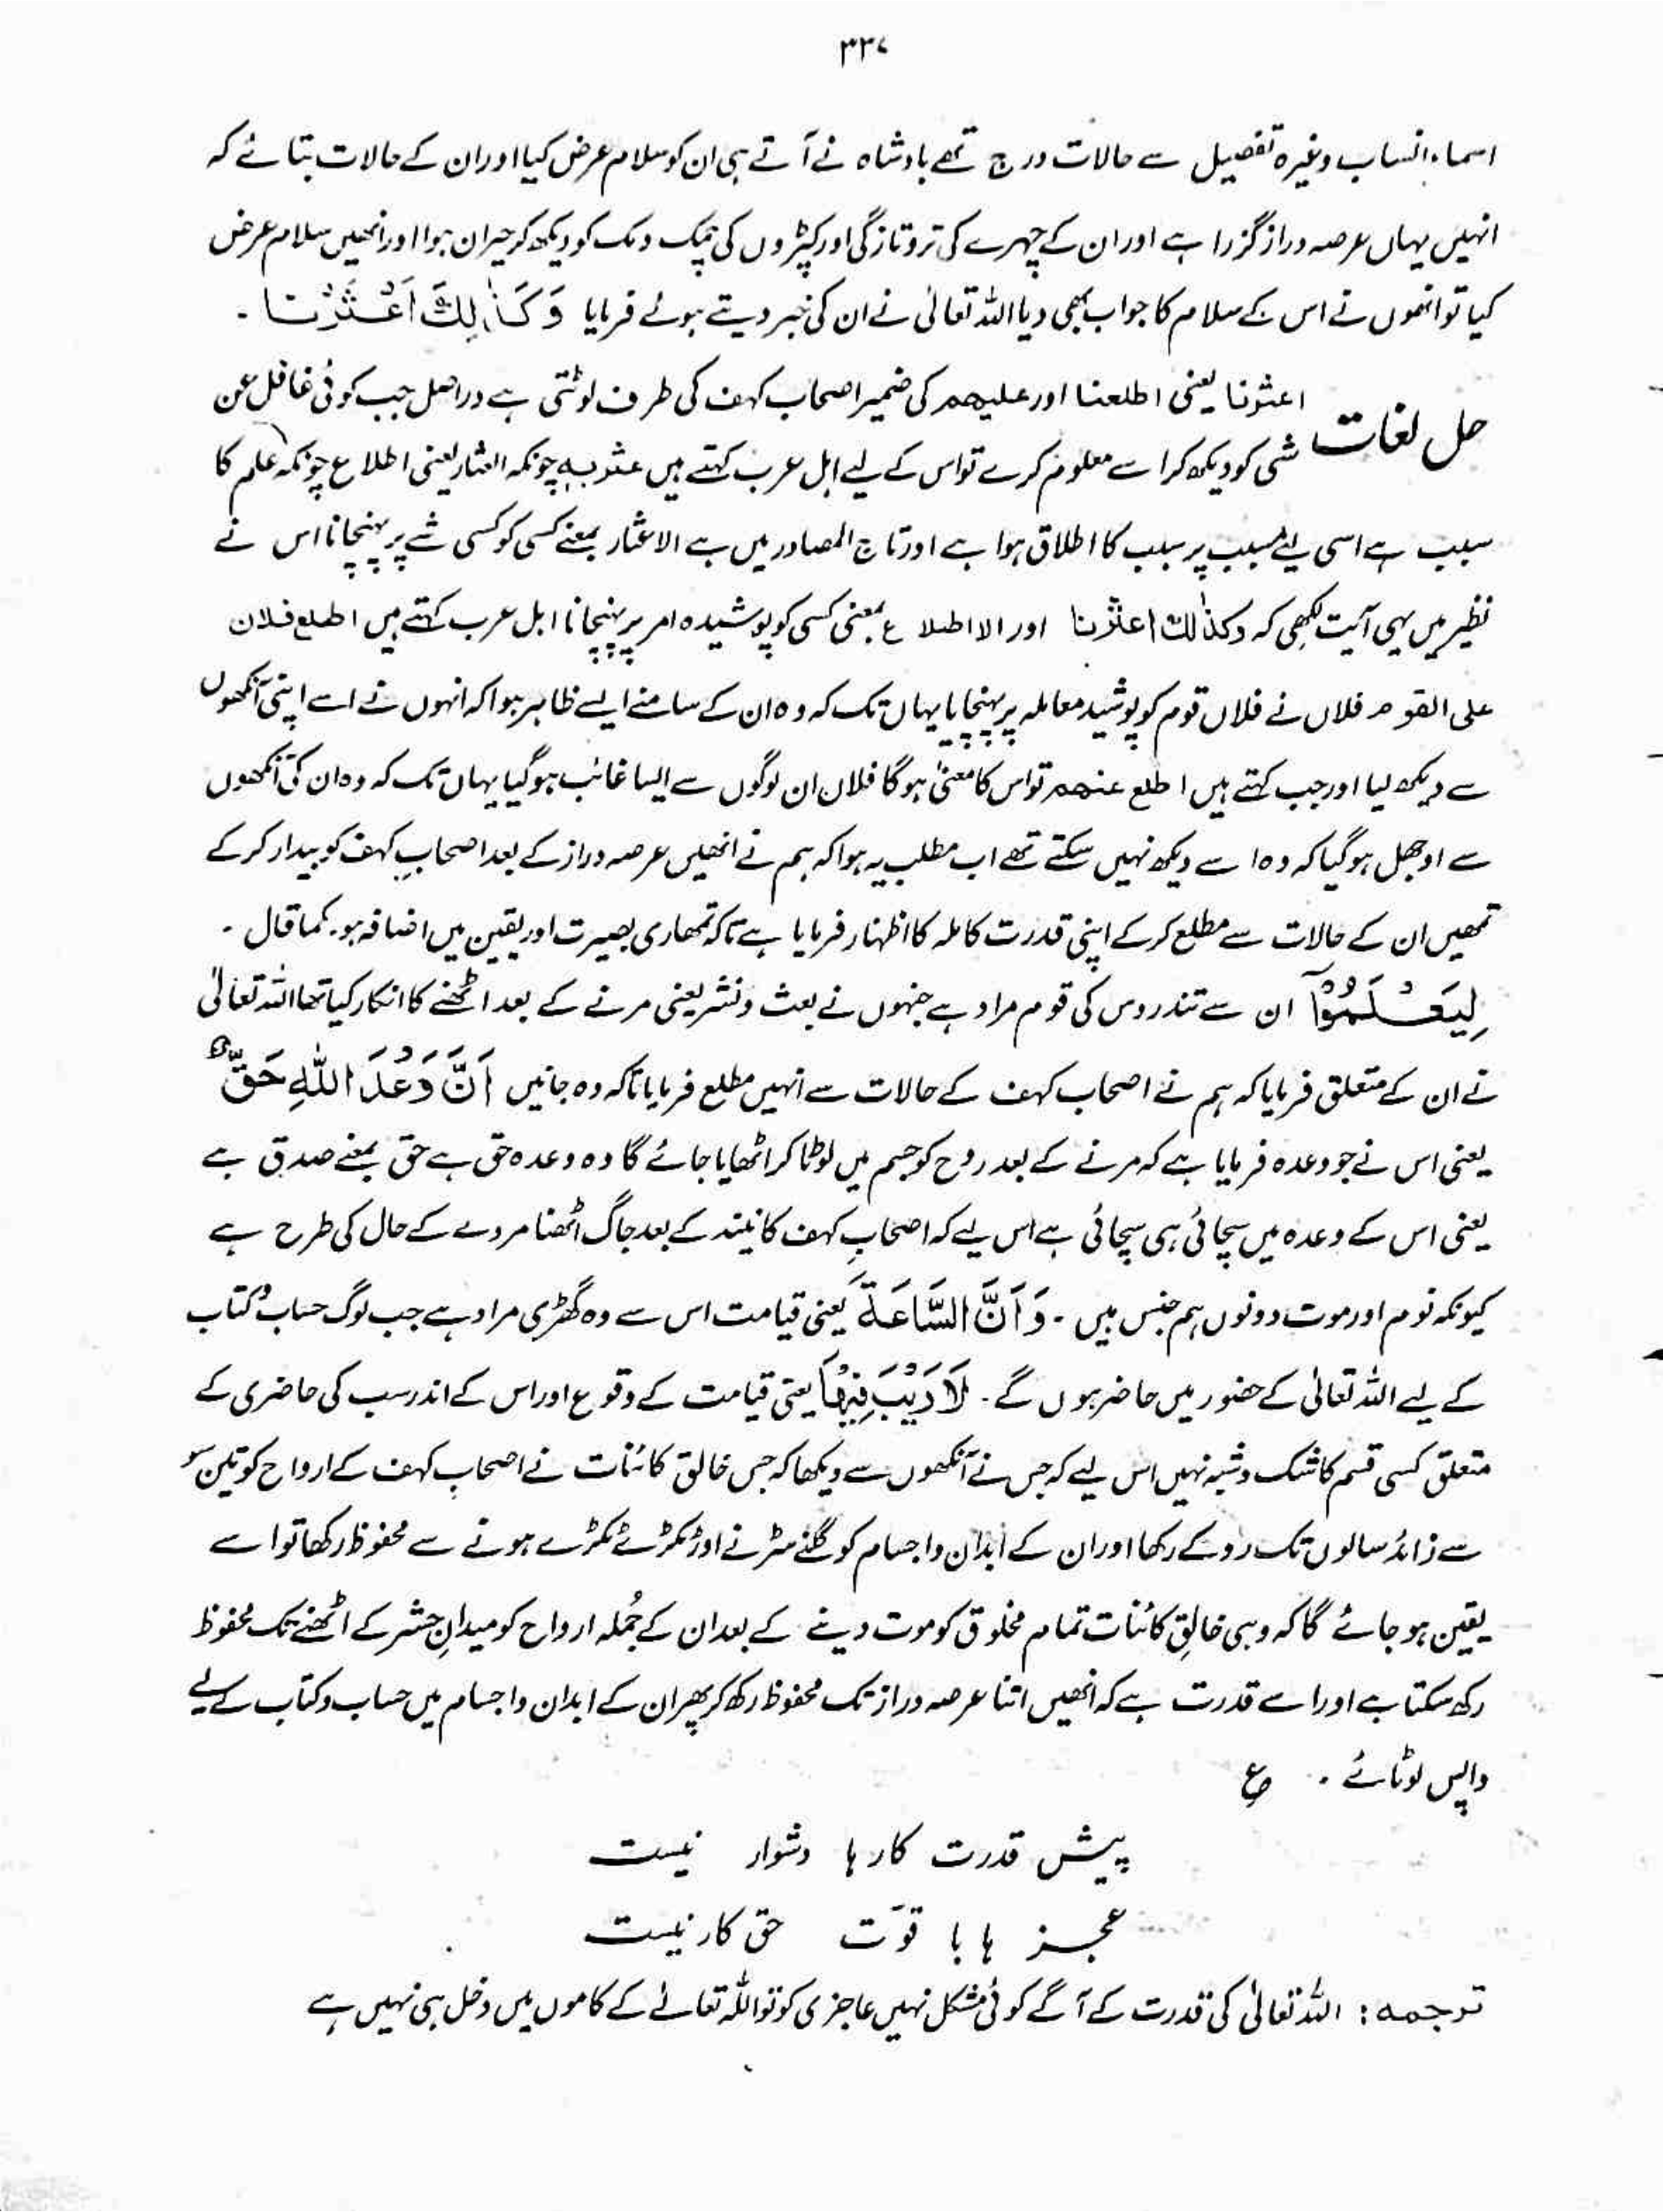 ۳۳۷
اسماء انساب وغیرہ تفصیل سے حالات درج تھے بادشاہ نے آتے ہی ان کو سلام عرض کیا اور ان کے حالات بتائے کہ
انہیں یہاں عرصہ دراز گزرا ہے اور ان کے چہرے کی تروتازگی اور کپڑوں کی چمک دمک کو دیکھ کر حیران ہوا اور انھیں سلام عرض
کیا تو انھوں نے اس کے سلام کا جواب بھی دیا اللہ تعالیٰ نے ان کی خبر دیتے ہوئے فرمایا وَكَذٰلِكَ اَعْثَرْنَا ۔
حل لغات اعثرنا یعنی اطلعنا اور علیہم کی ضمیر اصحاب کہف کی طرف لوٹتی ہے دراصل جب کوئی غافل عن
شی کو دیکھ کر اسے معلوم کرے تو اس کے لیے اہل عرب کہتے ہیں عثر بہ چونکہ العثار یعنی اطلاع چونکہ علم کا
سبب ہے اسی لیے مسبب پر سبب کا اطلاق ہوا ہے اور تاج المصادر میں ہے الاعثار بمعنے کسی کو کسی شے پر پہنچانا اس نے
نظیر میں یہی آیت لکھی کہ وکذٰلک اعثرنا اور الاطلاع بمعنی کسی کو پوشیدہ امر پر پہنچانا اہل عرب کہتے ہیں اطلع فلان
علی القوم فلاں نے فلاں قوم کو پوشیدہ معاملہ پر پہنچایا یہاں تک کہ وہ ان کے سامنے ایسے ظاہر ہوا کہ انہوں نے اسے اپنی آنکھوں
سے دیکھ لیا اور جب کہتے ہیں اطلع عنہم تو اس کا معنیٰ ہو گا فلان ان لوگوں سے ایسا غائب ہو گیا یہاں تک کہ وہ ان کی آنکھوں
سے اوجھل ہو گیا کہ وہ اسے دیکھ نہیں سکتے تھے اب مطلب یہ ہوا کہ ہم نے انھیں عرصہ دراز کے بعد اصحابِ کہف کو بیدار کر کے
تمھیں ان کے حالات سے مطلع کر کے اپنی قدرت کاملہ کا اظہار فرمایا ہے تاکہ تمھاری بصیرت اور یقین میں اضافہ ہو۔ کما قال ۔
لِيَعْلَمُوْٓا ان سے تندروس کی قوم مراد ہے جنہوں نے بعث و نشر یعنی مرنے کے بعد اٹھنے کا انکار کیا تھا اللہ تعالیٰ
نے ان کے متعلق فرمایا کہ ہم نے اصحاب کہف کے حالات سے انہیں مطلع فرمایا تاکہ وہ جانیں اَنَّ وَعْدَ اللّٰهِ حَقٌّ
یعنی اس نے جو وعدہ فرمایا ہے کہ مرنے کے بعد روح کو جسم میں لوٹا کر اٹھایا جائے گا وہ وعدہ حق ہے حق بمعنے صدق ہے
یعنی اس کے وعدہ میں سچائی ہی سچائی ہے اس لیے کہ اصحابِ کہف کا نیند کے بعد جاگ اٹھنا مردے کے حال کی طرح ہے
کیونکہ نوم اور موت دونوں ہم جنس ہیں ۔ وَاَنَّ السَّاعَةَ یعنی قیامت اس سے وہ گھڑی مراد ہے جب لوگ حساب و کتاب
کے لیے اللہ تعالیٰ کے حضور میں حاضر ہوں گے ۔ لَا رَيْبَ فِيْهَا یعنی قیامت کے وقوع اور اس کے اندر سب کی حاضری کے
متعلق کسی قسم کا شک و شبہ نہیں اس لیے کہ جس نے آنکھوں سے دیکھا کہ جس خالق کائنات نے اصحابِ کہف کے ارواح کو تین سو
سے زائد سالوں تک روکے رکھا اور ان کے ابدان و اجسام کو گلنے سڑنے اور ٹکڑے ٹکڑے ہونے سے محفوظ رکھا تو اسے
یقین ہو جائے گا کہ وہی خالقِ کائنات تمام مخلوق کو موت دینے کے بعد ان کے جُملہ ارواح کو میدانِ حشر کے اٹھنے تک محفوظ
رکھ سکتا ہے اور اسے قدرت ہے کہ انھیں اتنا عرصہ دراز تک محفوظ رکھ کر پھر ان کے ابدان و اجسام میں حساب و کتاب کے لیے
واپس لوٹائے ۔ ع
پیش قدرت کارہا دشوار نیست
عجزہا با قوّت حق کار نیست
ترجمہ : اللہ تعالیٰ کی قدرت کے آگے کوئی مشکل نہیں عاجزی کو تو اللہ تعالےٰ کے کاموں میں دخل ہی نہیں ہے